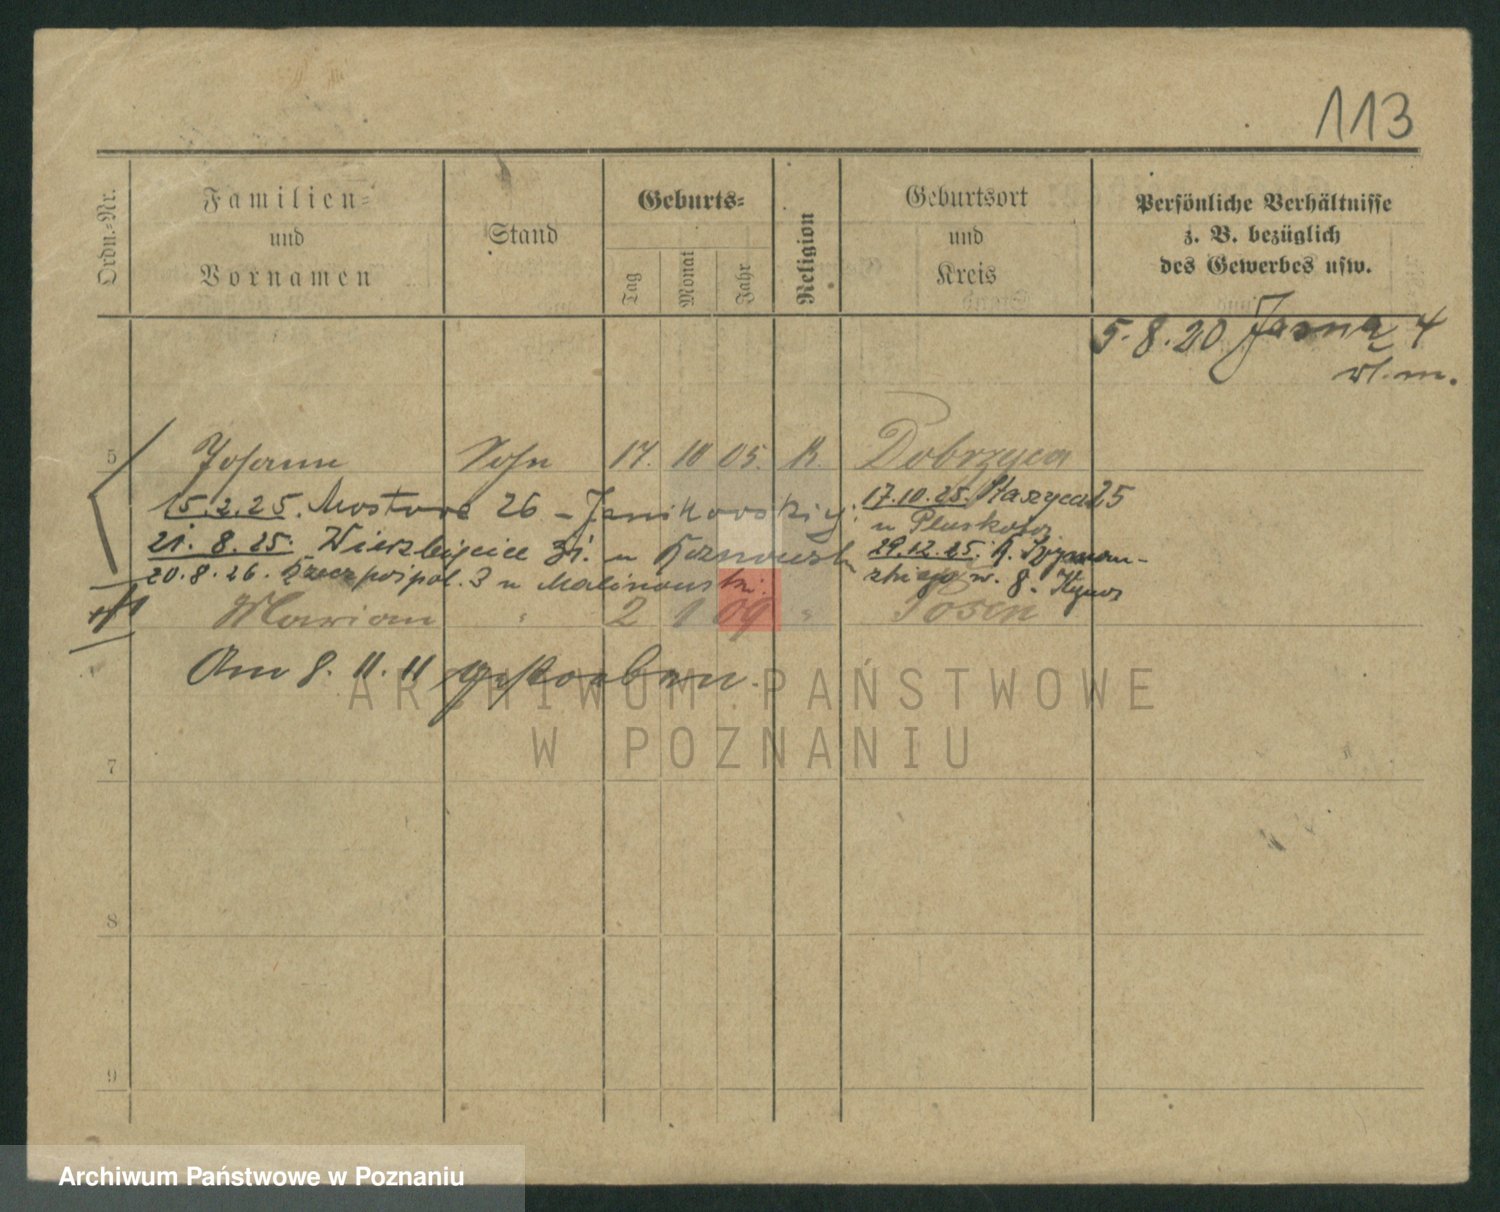 113
Ordn.-Nr.
Familien-
und
Vornamen
Stand
Geburts-
Tag
Monat
Jahr
Religion
Geburtsort
und
Kreis
Persönliche Verhältnisse
z. B. bezüglich
des Gewerbes usw.
5.8.20 Jasna 4
5 Johann Sohn 17. 10 05. K. Dobrzyca
15.2.25. Mostowa 26 – Janikowskiej.
17.10.25. Staszyca 25
u Pluskota
21. 8. 25. Wierzbięcice 31. u
29.12.25. K. Szyman-
20.8.26. Rzeczpospol. 3 u Malinowski.
skiego w. 8.
Marian " 2 1 09 " Posen
Am 8. 11. 11 gestorben.
7
8
9
ARCHIWUM PAŃSTWOWE
W POZNANIU
Archiwum Państwowe w Poznaniu